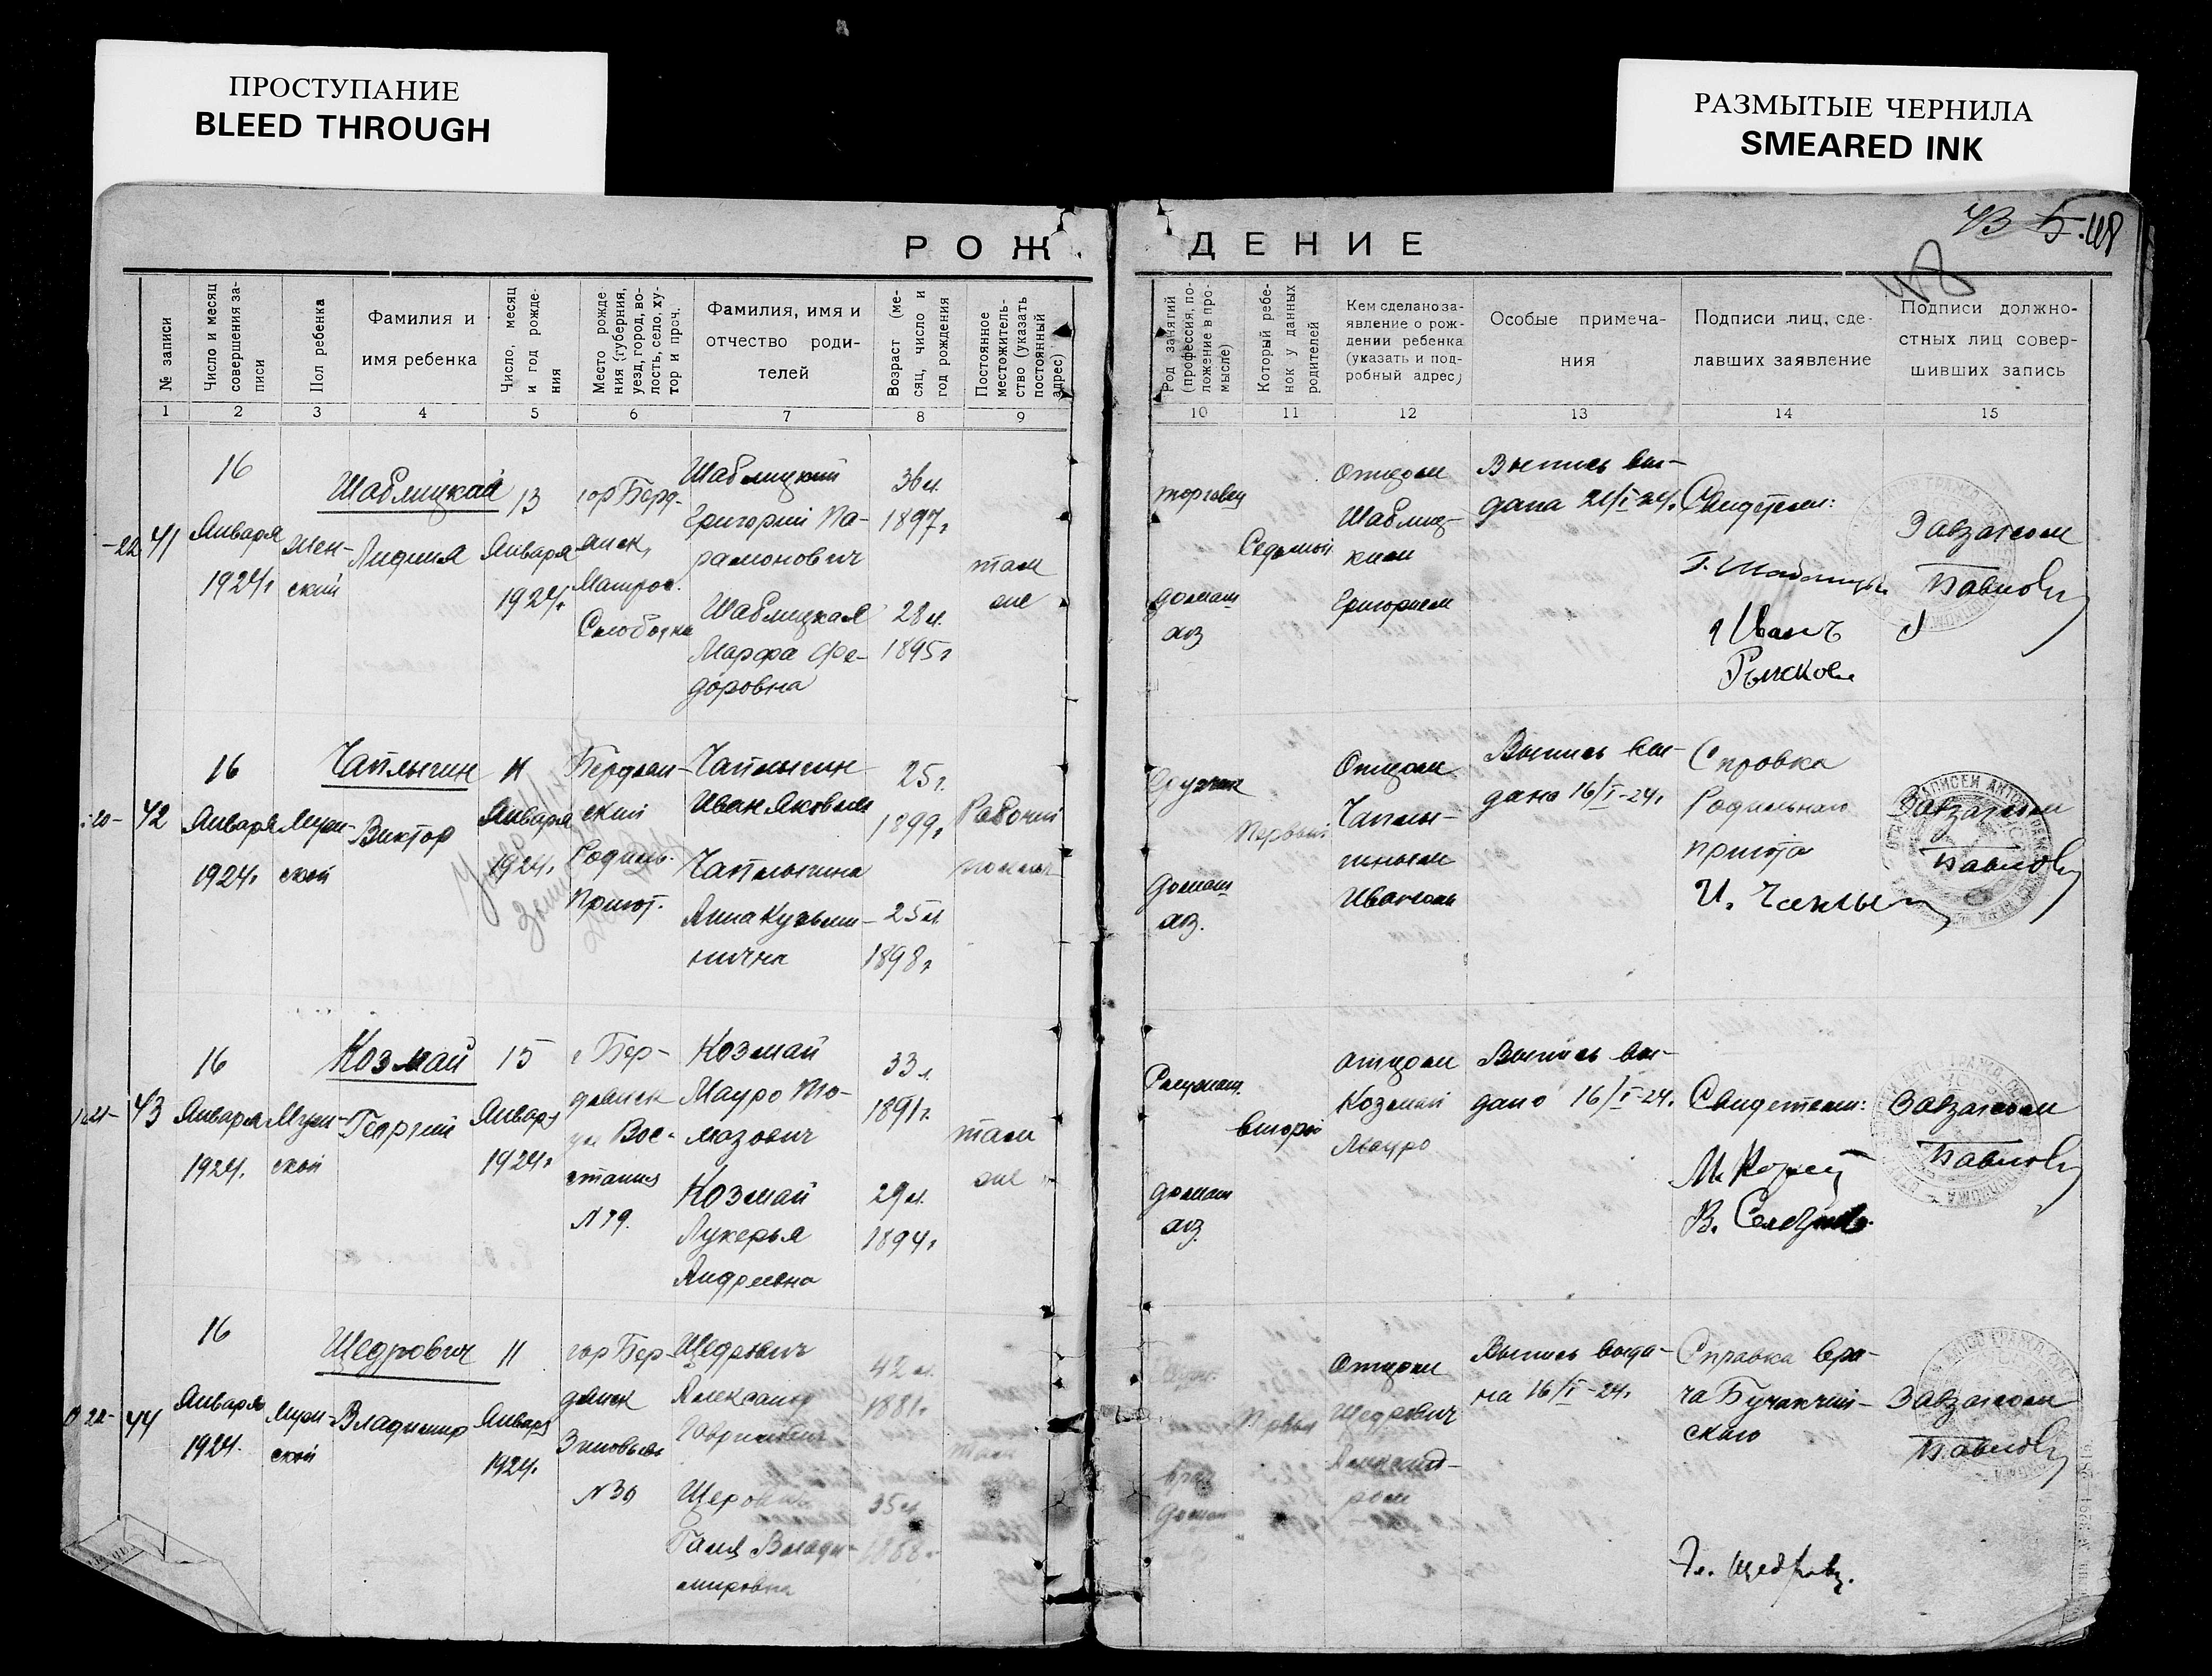 ПРОСТУПАНИЕ
BLEED THROUGH
РАЗМЫТЫЕ ЧЕРНИЛА
SMEARED INK
43 5. 48
48
РОЖ
ДЕНИЕ
№ записи
Число и месяц
совершения за-
писи
Пол ребенка
Фамилия и
имя ребенка
Число, месяц
и год рожде-
ния
Место рожде
ния (губерния,
уезд, город, во-
лость, село, ху-
тор и проч.
Фамилия, имя и
отчество роди-
телей
Возраст (ме-
сяц, число и
год рождения
Постоянное
местожитель-
ство (указать
постоянный
адрес)
Род занятий
(профессия, по-
ложение в про-
мысле)
Который ребе-
нок у данных
родителей
Кем сделано за-
явление о рож-
дении ребенка
(указать и под-
робный адрес)
Особые примеча-
ния
Подписи лиц, сде-
лавших заявление
Подписи должно-
стных лиц совер-
шивших запись
1 2 3 4 5 6 7 8 9
10 11 12 13 14 15
41
16
Января
1924г
жен-
ский
Шаблицкая
Лидия
13
Января
1924г.
гор Берд-
янск,
Матрос.
Слободка
Шаблицкий
Григорий Па-
рамонович
Шаблицкая
Марфа Фе-
доровна
1897г
28 л.
1895г
там
же
торговец
домаш
хоз
Седьмой
Отцом
Шаблиц-
ким
Григорием
Выпись вы-
дана 21/I-24г.
Свидетели:
я Иванъ
Завзагсом
Павлов
42
16
Января
1924г
муж-
ской
Чаплыгин
Виктор
11
Января
1924г.
Бердян-
ский
Родиль.
Приют.
Чаплыгин
Иван Яковлев
Чаплыгина
Анна Кузьми-
нична
25г.
1899г
25 л.
1898г
Рабочий
домаш
хоз.
Первый
Отцом
Чаплы-
гиным
Иваном
Выпись вы-
дана 16/I-24г
Справка
Родильного
приюта
И. Чаплы
Завзагсом
Павлов
43
16
Января
1924.
Муж-
ской
Козмай
Георгий
15
Январ
1924г
г Бер-
дянск
ул Вос-
стания
N 79.
Козмай
Мауро То-
мазович
Козмай
Лукерья
Андреевна
33 л.
1891г.
29 л.
1894г
там
же
домаш
хоз.
второй
отцом
Козмай
Мауро
Выпись вы-
дано 16/I-24г.
Свидетели:
Завзагсом
Павлов
44
16
Января
1924.
муж
ской
Щедрович
Владимир
11
Января
1924.
гор Бер-
дянск
Зиновьева
N 30
Щедрович
Александр
Владими-
мировна
42 л.
1881г.
35 л.
там
врач
домаш
Первый
Отцом
Щедрович
Александ-
ром
Выпись выда-
на 16/I-24г.
Справка вра-
ча
Завзагсом
Павлов